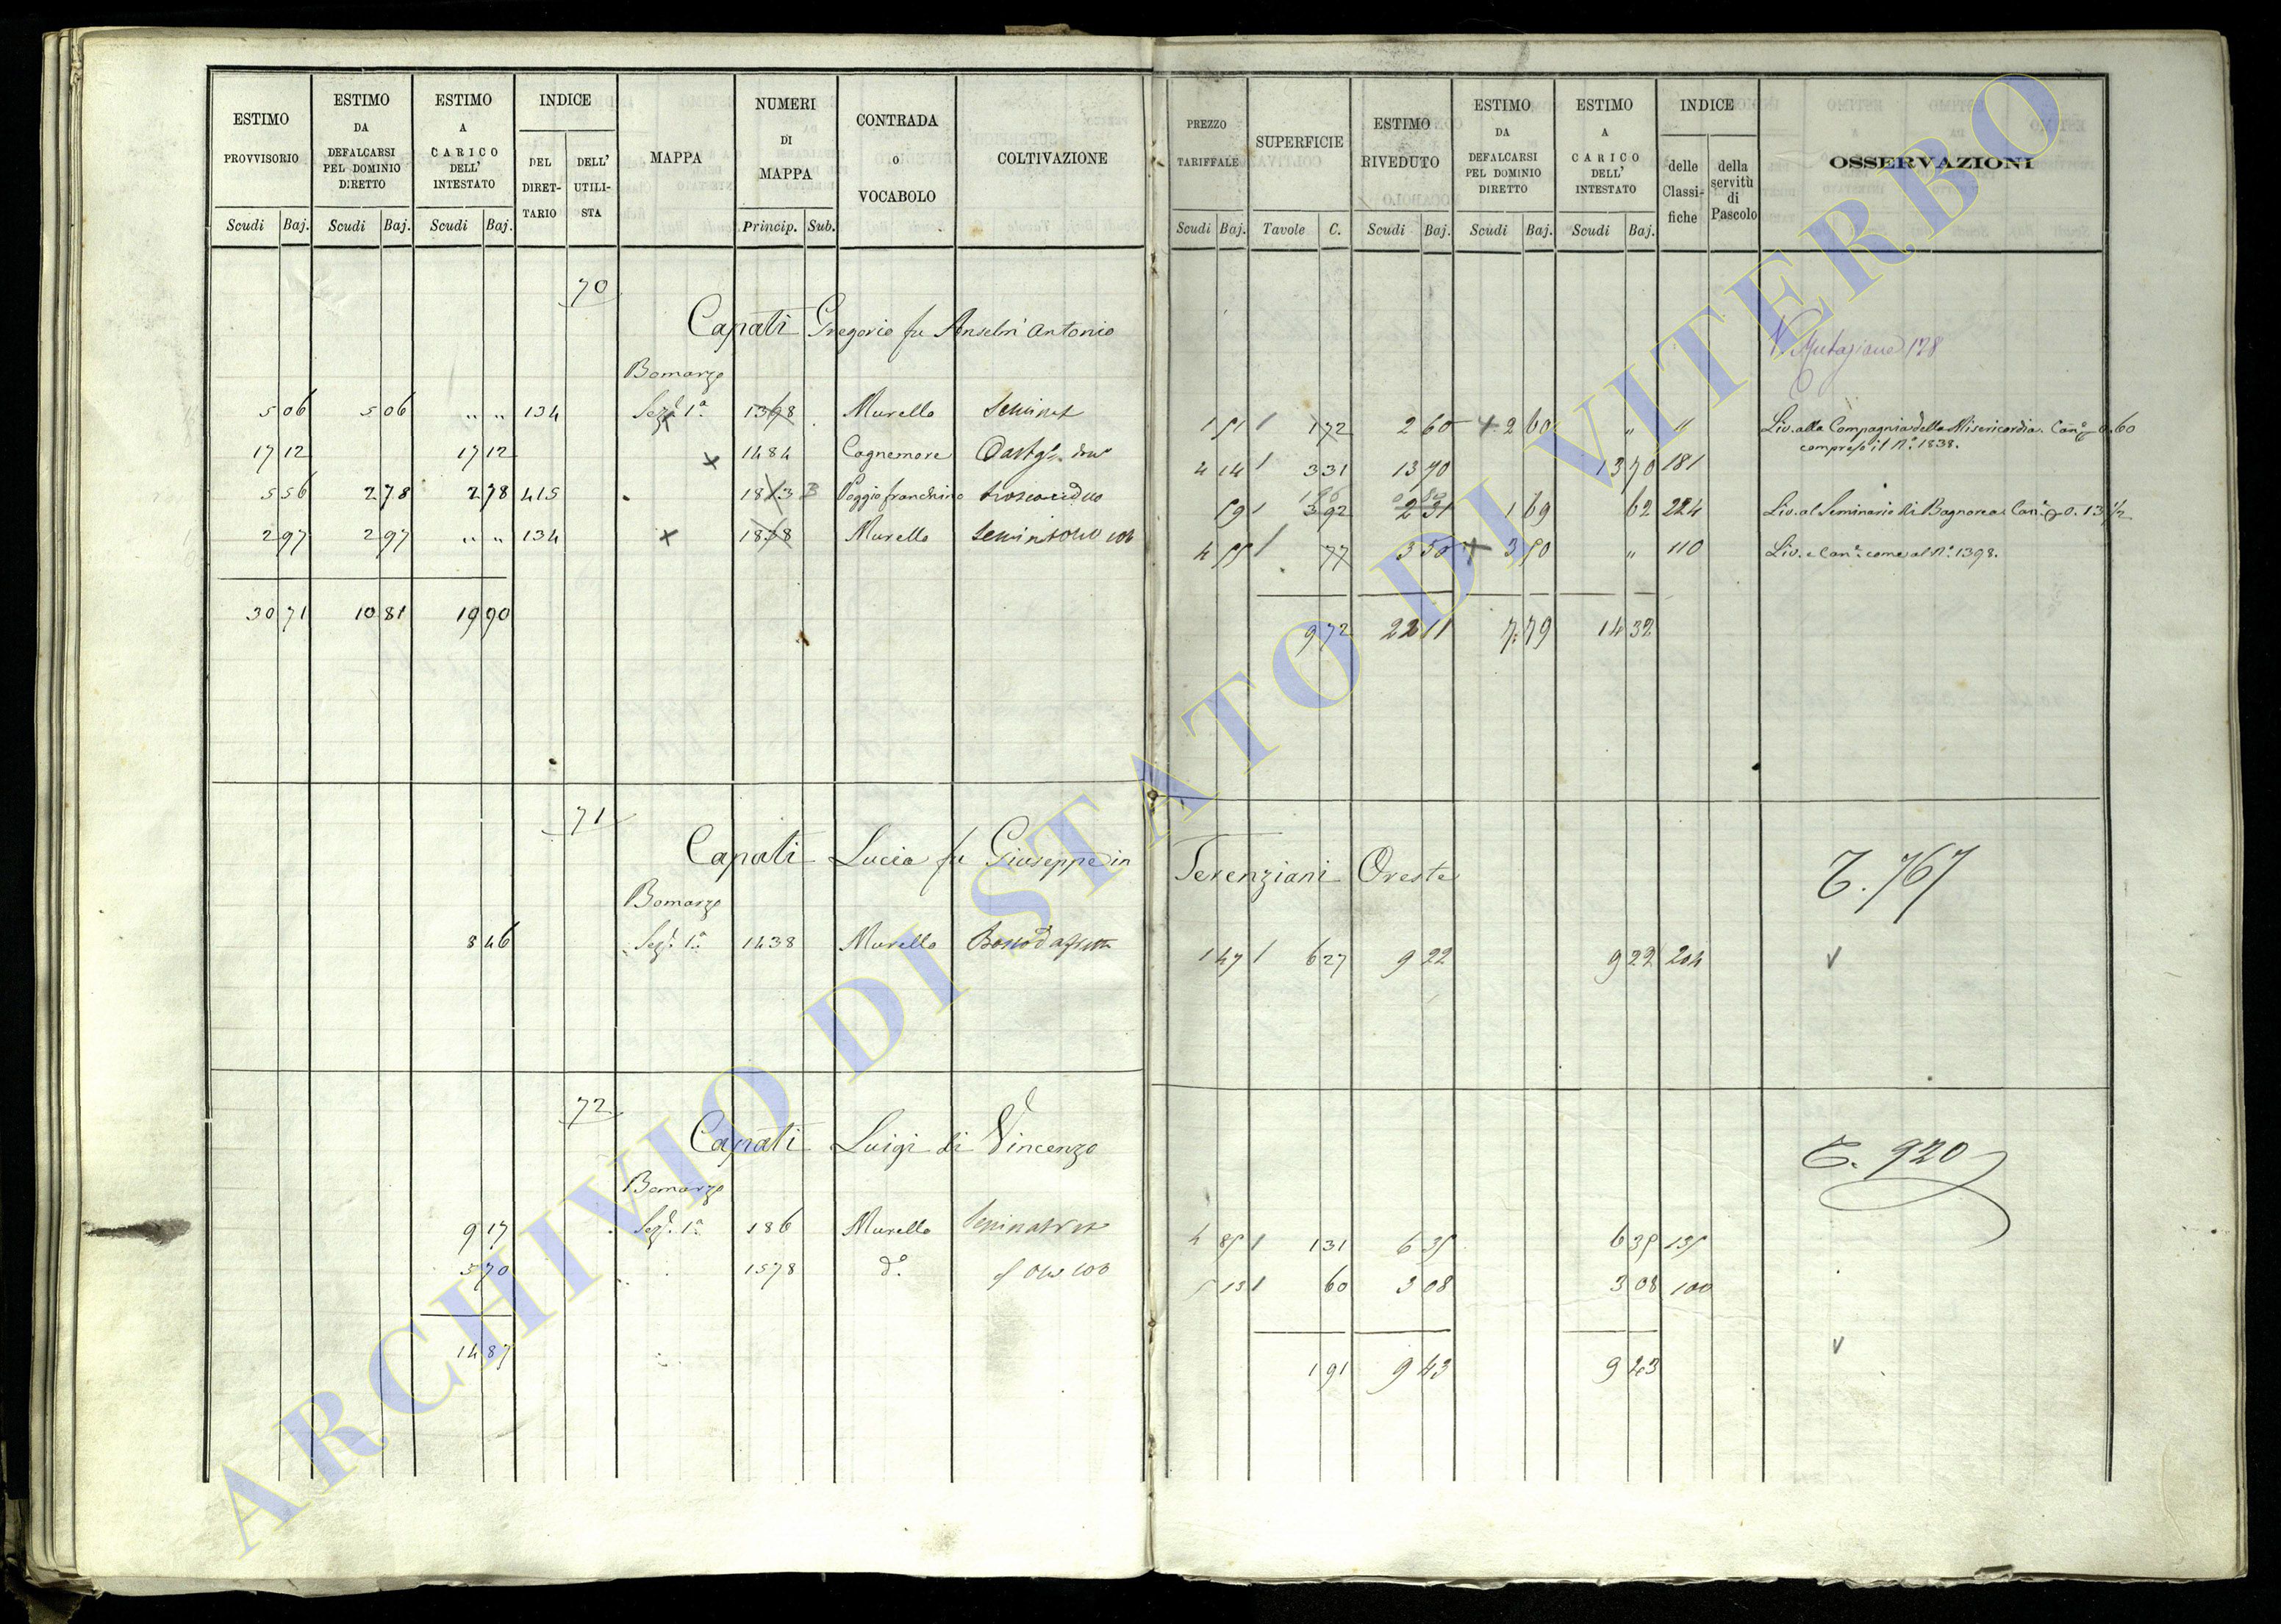 ESTIMO PROVVISORIO Scudi Baj.
ESTIMO DA DEFALCARSI PEL DOMINIO DIRETTO Scudi Baj.
ESTIMO A CARICO DELL' INTESTATO Scudi Baj.
INDICE DEL DIRET-TARIO DELL' UTILI-STA
MAPPA
NUMERI DI MAPPA Princip. Sub.
CONTRADA O VOCABOLO
COLTIVAZIONE
PREZZO TARIFFALE Scudi Baj.
SUPERFICIE Tavole C.
ESTIMO RIVEDUTO Scudi Baj.
ESTIMO DA DEFALCARSI PEL DOMINIO DIRETTO Scudi Baj.
ESTIMO A CARICO DELL' INTESTATO Scudi Baj.
INDICE delle Classi-fiche della servitù di Pascolo
OSSERVAZIONI
70
Capati Gregorio fu Anselm'antonio
N. Mutazione 178
Bomarzo
5 06 5 06 " " 134 Sezne 1a 1398 Murello Seminat 1 51 172 2 60 2 60 " 11 Liv. alla Compagnia della Misericordia. Cane 0.60
compreso il No 1838.
17 12 17 12 1484 Cagnemore 4 14 331 13 70 13 70 181
5 56 2 78 2 78 415 1813 3 Poggio franchino 59 392 2 31 1 69 62 224 Liv. al Seminario di Bagnorea Cane 0.13 1/2
2 97 2 97 " " 134 1838 Murello 4 55 77 3 50 3 50 " 110 Liv. e Cane come al No 1398.
30 71 10 81 19 90 972 22 11 7.79 14 32
71
Capati Lucia fu Giuseppe in Terenziani Oreste
T. 767
Bomarzo
8 46 Sezne 1a 1438 Murello 1 47 627 9 22 9 22 204
72
Capati Luigi di Vincenzo
T. 920
Bomarzo
9 17 Sezne 1a 186 Murello 4 85 131 6 35 6 35 135
5 70 1578 do 5 13 60 3 08 3 08 100
14 87 191 9 43 9 43
ARCHIVIO DI STATO DI VITERBO